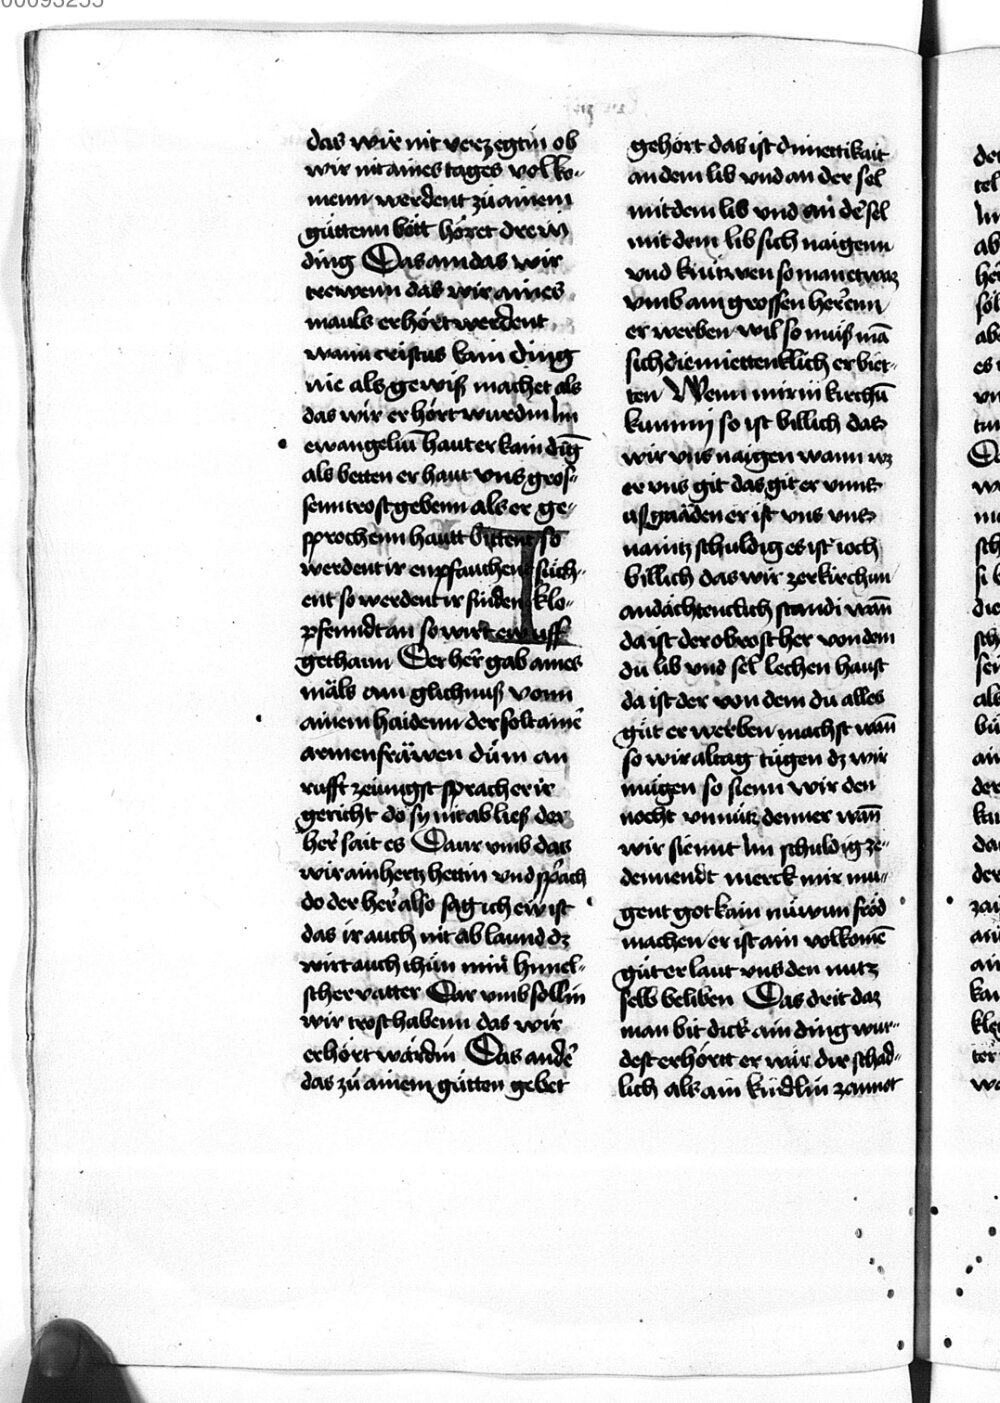 00095255
das wir nit verzegtin ob
wir nit aines tages volko-
menn werdent zů ainem
gůttenn bött höret drew
ding Das ain das wir
trewenn das wir aines
mauls erhört werdent
wann cristus kain ding
nie als gewiß machet als
das wir erhört wurdin Im
ewangeliū haut er kain dīg
als betten er haut vns gros-
senn trost gebenn als er ge-
sprochenn hautt bittent so
werdent ir enpfauchen sůch-
ent so werdent ir finden klo-
pfenndt an so wirt ew uff
gethann Der her̄ gab aines
mäls ain glichnuß vonn
ainem haidenn der solt ainē
armen fräwen dům an
rufft zeiungst sprach er ir
gericht do sy nit ab ließ der
her̄ sait es Darr vmb das
wir ain hertz hettin vnd sprach
do der her̄ also sag ich ew ist
das ir auch nit ab laund dz
wirt auch thůn min himel-
scher vatter Dar vmb söllin
wir trost habenn das wir
erhört wärdin Das andē
das zů ainem gůtten gebet
gehört das ist diemettikait
an dem lib vnd an der sel
mit dem lib vnd an dē sel
mit dem lib sich naigenn
vnd knüwen so man etwaz
vmb ain grossen her̄enn
er werben wil so můß mā
sich diemiettenklich erbiet-
ten Wenn mir in kirchū
kumm so ist billich das
wir vns naigen wann wz
er vns git das git er vnns
us gnäden er ist vns vns
naintz schuldig es ist ioch
billich das wir zer kirchun
andächtencklich standi wān
da ist der obrost her von dem
du lib vnd sel lechen haust
da ist der von dem du alles
gůt er werben machst wān
so wir altag tůgen dz wir
mugen so sienn wir den
nocht vnnütz denner wān
wir siennt Im schuldig ze-
dennendt merck mir mu-
gent got kain nüwun fröd
machen er ist ain volkomē
gůt er laut vns den nutz
selb beliben Das drit daz
man bit dick ain ding wur-
dest erhörtt er wär dir schad-
lich als ain kindlin zannot